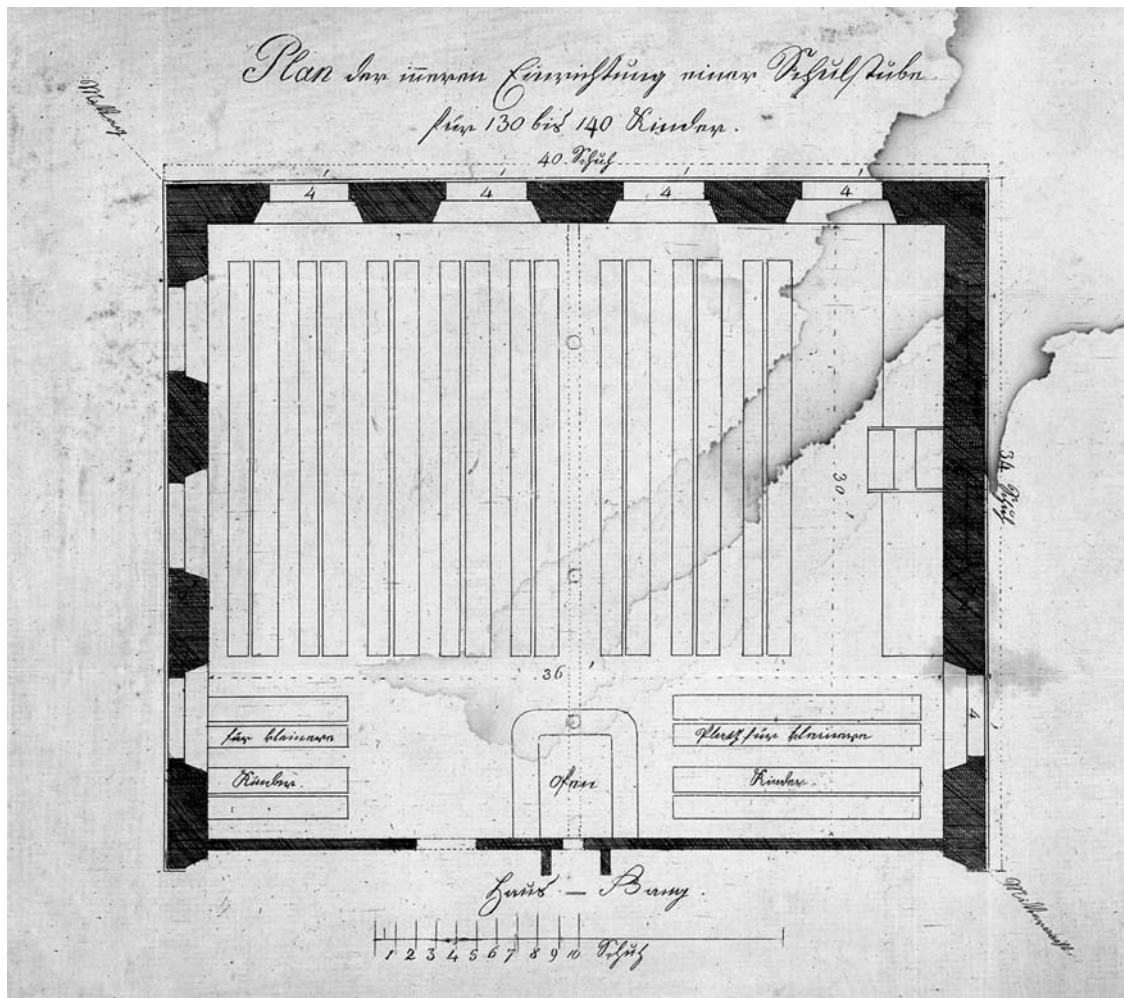 Plan der inneren Einrichtung einer Schulstube
für 130 bis 140 Kinder.
Mittag
40. Schuh
4 4 4 4
30
34 Schuh
36
4
für kleinere
Kinder.
Ofen
Platz für kleinere
Kinder.
Haus - Gang.
Mitternacht.
1 2 3 4 5 6 7 8 9 10 Schuh